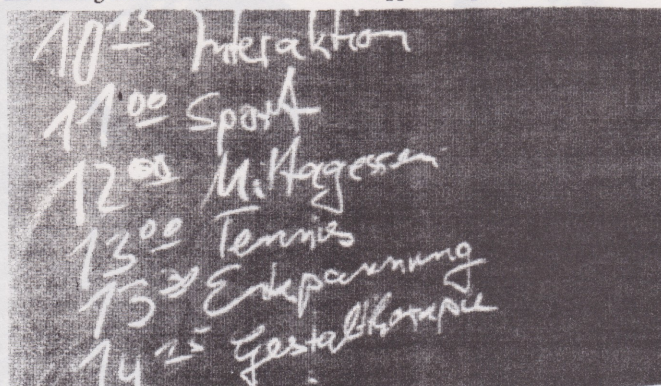 10 15 Interaktion
11 00 Sport
12 00 Mittagessen
13 00 Tennis
Entspannung
14 Gestalttherapie